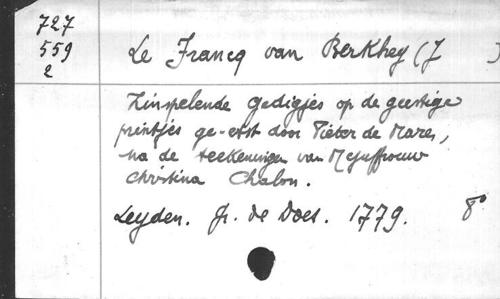 727
559
2
Le Francq van Berkhey (J )
Zinspelende Gedigjes op de geestige
printjes ge-etst door Pieter de Mares,
na de teekeningen van Mejuffrouw
Christina Chalon.
Leyden. Fr. de Does. 1779. 8°